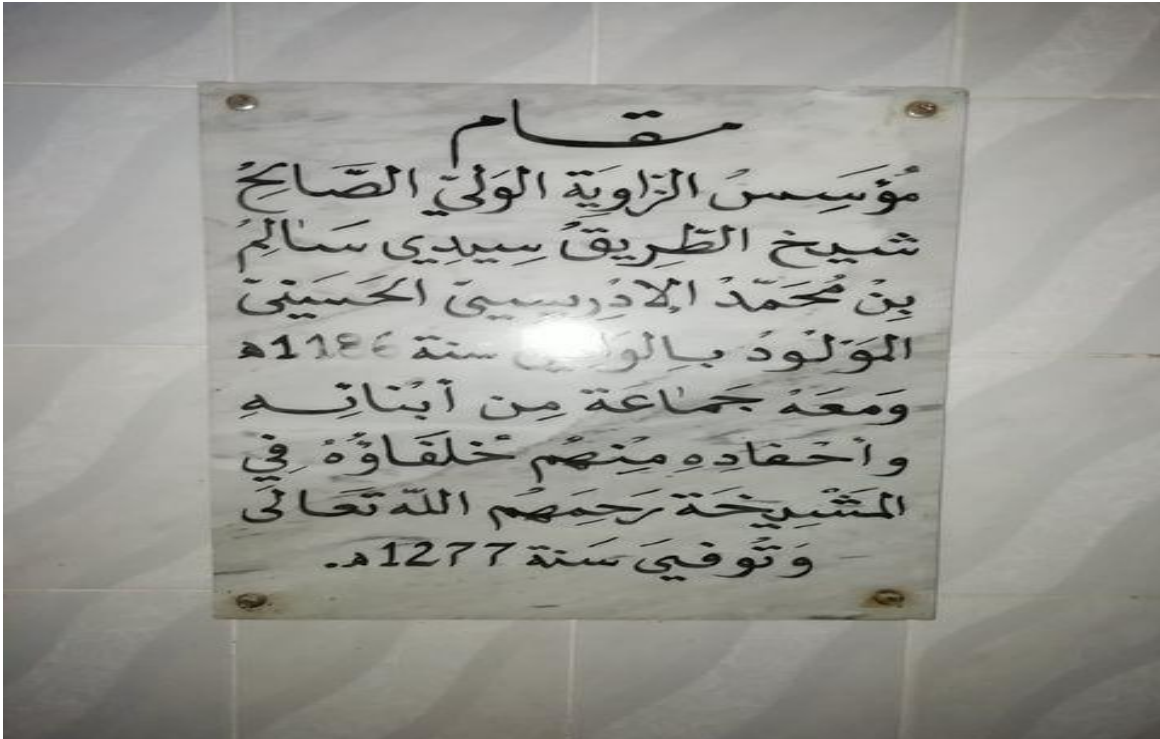 مقام
مُؤَسِسُ الزاوِيَة الوَليّ الصَّالِحُ
شيخ الطَّرِيقُ سِيدِي سَالِمُ
بِنْ مُحَمَّدْ الإدْرِيسِيّ الحَسَنِيّ
المَوْلُودُ سنة 1186ه
وَمَعَهُ جَمَاعَة مِن أبْنائِهِ
وأحْفادِهِ مِنْهُم خُلَفَاؤُهُ فِي
المَشْيِخَة رَحِمَهُم اللّه تَعَالَى
وَتُوفِيَ سَنة 1277ه.